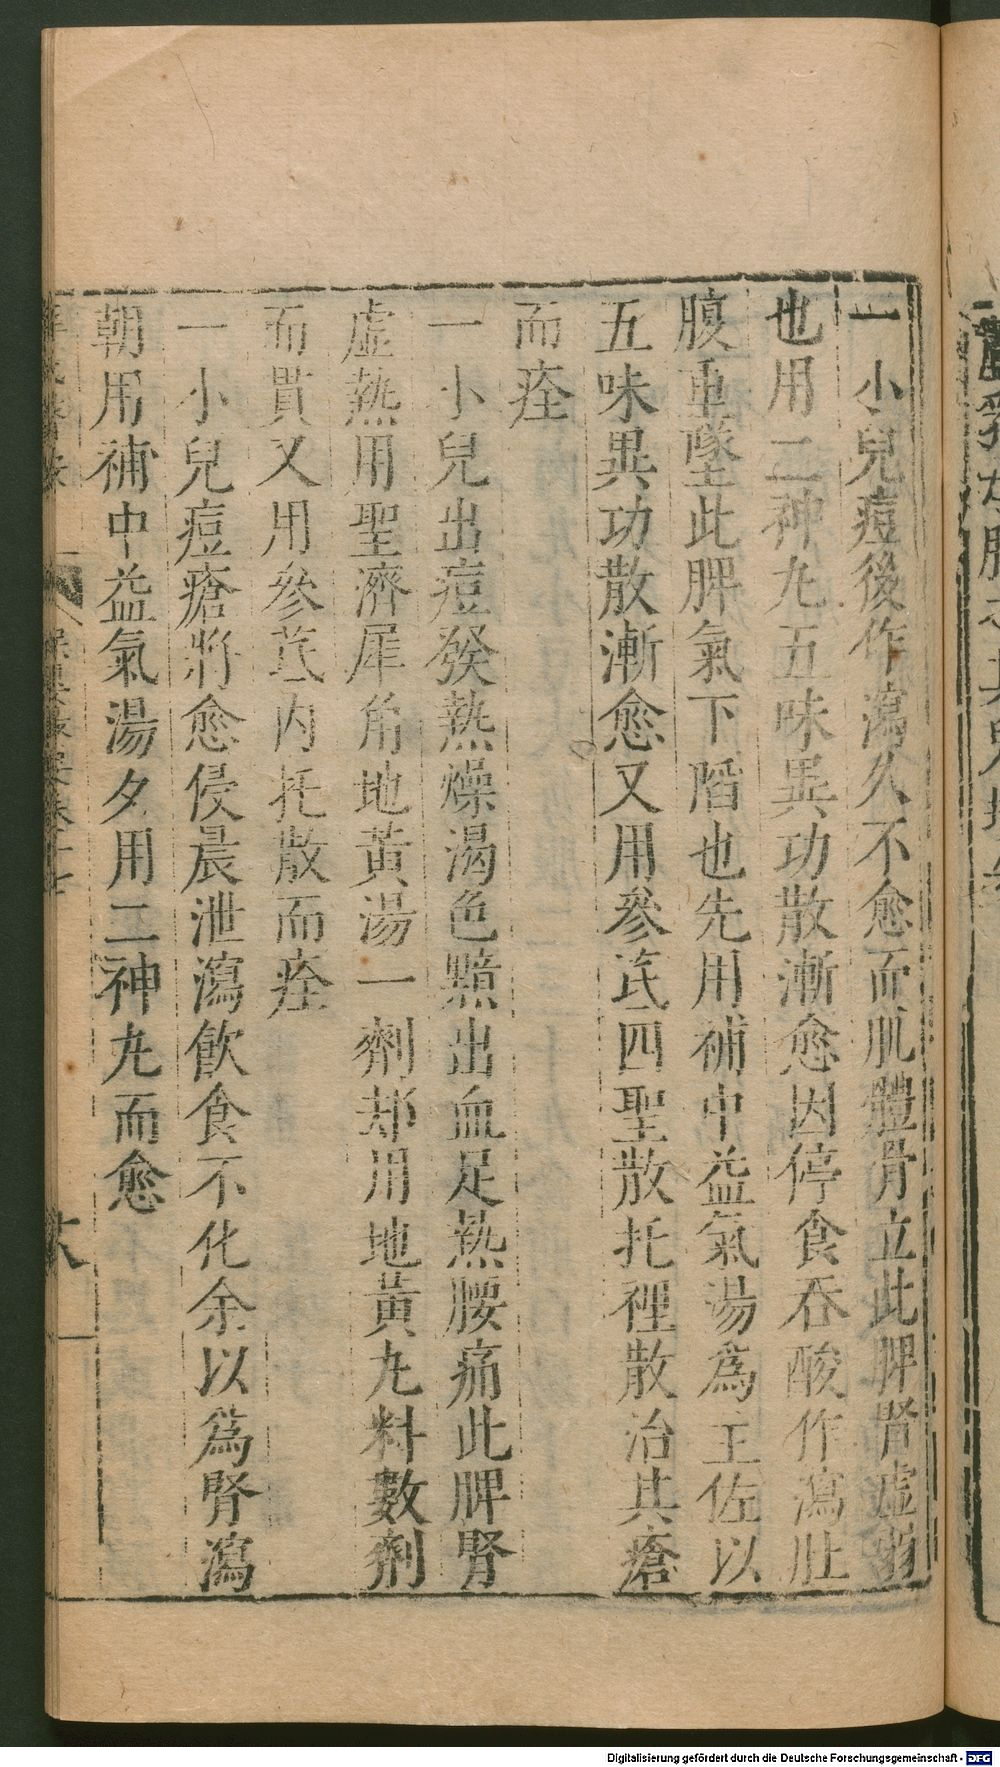 一小兒痘後作瀉久不愈而肌體骨立此脾腎虛弱
也用二神丸五味異功散漸愈因停食吞酸作瀉肚
腹重墜此脾氣下陷也先用補中益氣湯爲主佐以
五味異功散漸愈又用參芪四聖散托裡散治其瘡
而痊
一小兒出痘發熱燥渴色黯出血足熱腰痛此脾腎
虛熱用聖濟犀角地黃湯一劑却用地黃丸料數劑
而貫又用參芪內托散而痊
一小兒痘瘡將愈侵晨泄瀉飲食不化余以爲腎瀉
朝用補中益氣湯夕用二神丸而愈
Digitalisierung gefördert durch die Deutsche Forschungsgemeinschaft - DFG